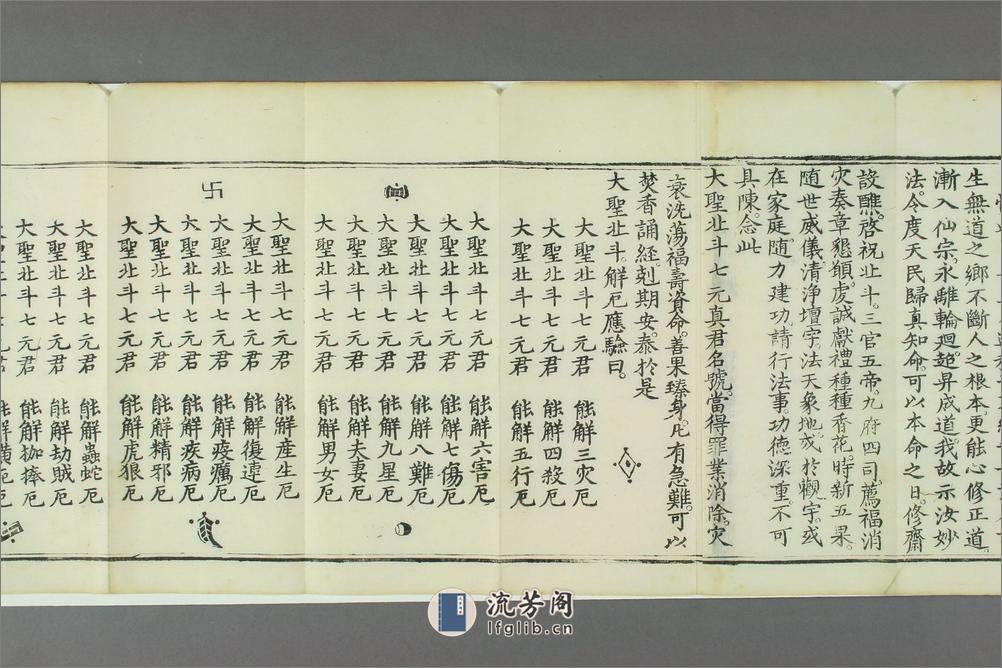 生無道之鄉不斷人之根本更能心修正道。
漸入仙宗。永離輪廻。超昇成道。我故示汝妙
法。令度天民歸真知命。可以本命之日。修齋
設醮。啓祝北斗。三官五帝。九府四司。薦福消
灾奏章懇願。虔誠獻禮種種香花。時新五果。
随世威儀清淨壇宇。法天象地。或於觀宇。或
在家庭。随力建功。請行法事。功德深重。不可
具陳。念此
大聖北斗七元真君名號。當得罪業消除。灾
衰洗蕩福壽資命。善果臻身。凡有急難。可以
焚香誦經。尅期安泰於是
大聖北斗。解厄應驗曰。
大聖北斗七元君 能解三灾厄
大聖北斗七元君 能解四殺厄
大聖北斗七元君 能解五行厄
大聖北斗七元君 能解六害厄
大聖北斗七元君 能解七傷厄
大聖北斗七元君 能解八難厄
大聖北斗七元君 能解九星厄
大聖北斗七元君 能解夫妻厄
大聖北斗七元君 能解男女厄
卐
大聖北斗七元君 能解產生厄
大聖北斗七元君 能解復連厄
大聖北斗七元君 能解疫癘厄
大聖北斗七元君 能解疾病厄
大聖北斗七元君 能解精邪厄
大聖北斗七元君 能解虎狼厄
大聖北斗七元君 能解蟲蛇厄
大聖北斗七元君 能解劫賊厄
大聖北斗七元君 能解枷棒厄
流芳阁
lfglib.cn